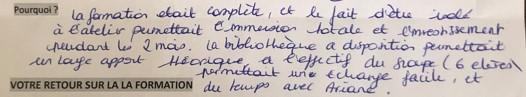 Pourquoi ? la formation était complète, et le fait d'être isolé
à l'atelier permettait l'immersion totale et l'investissement
pendant les 2 mois. la bibliothèque a disposition permettait
un large apport théorique, à l'effectif du groupe (6 elèves)
permettait une échange facile, et
VOTRE RETOUR SUR LA LA FORMATION du temps avec Ariane.